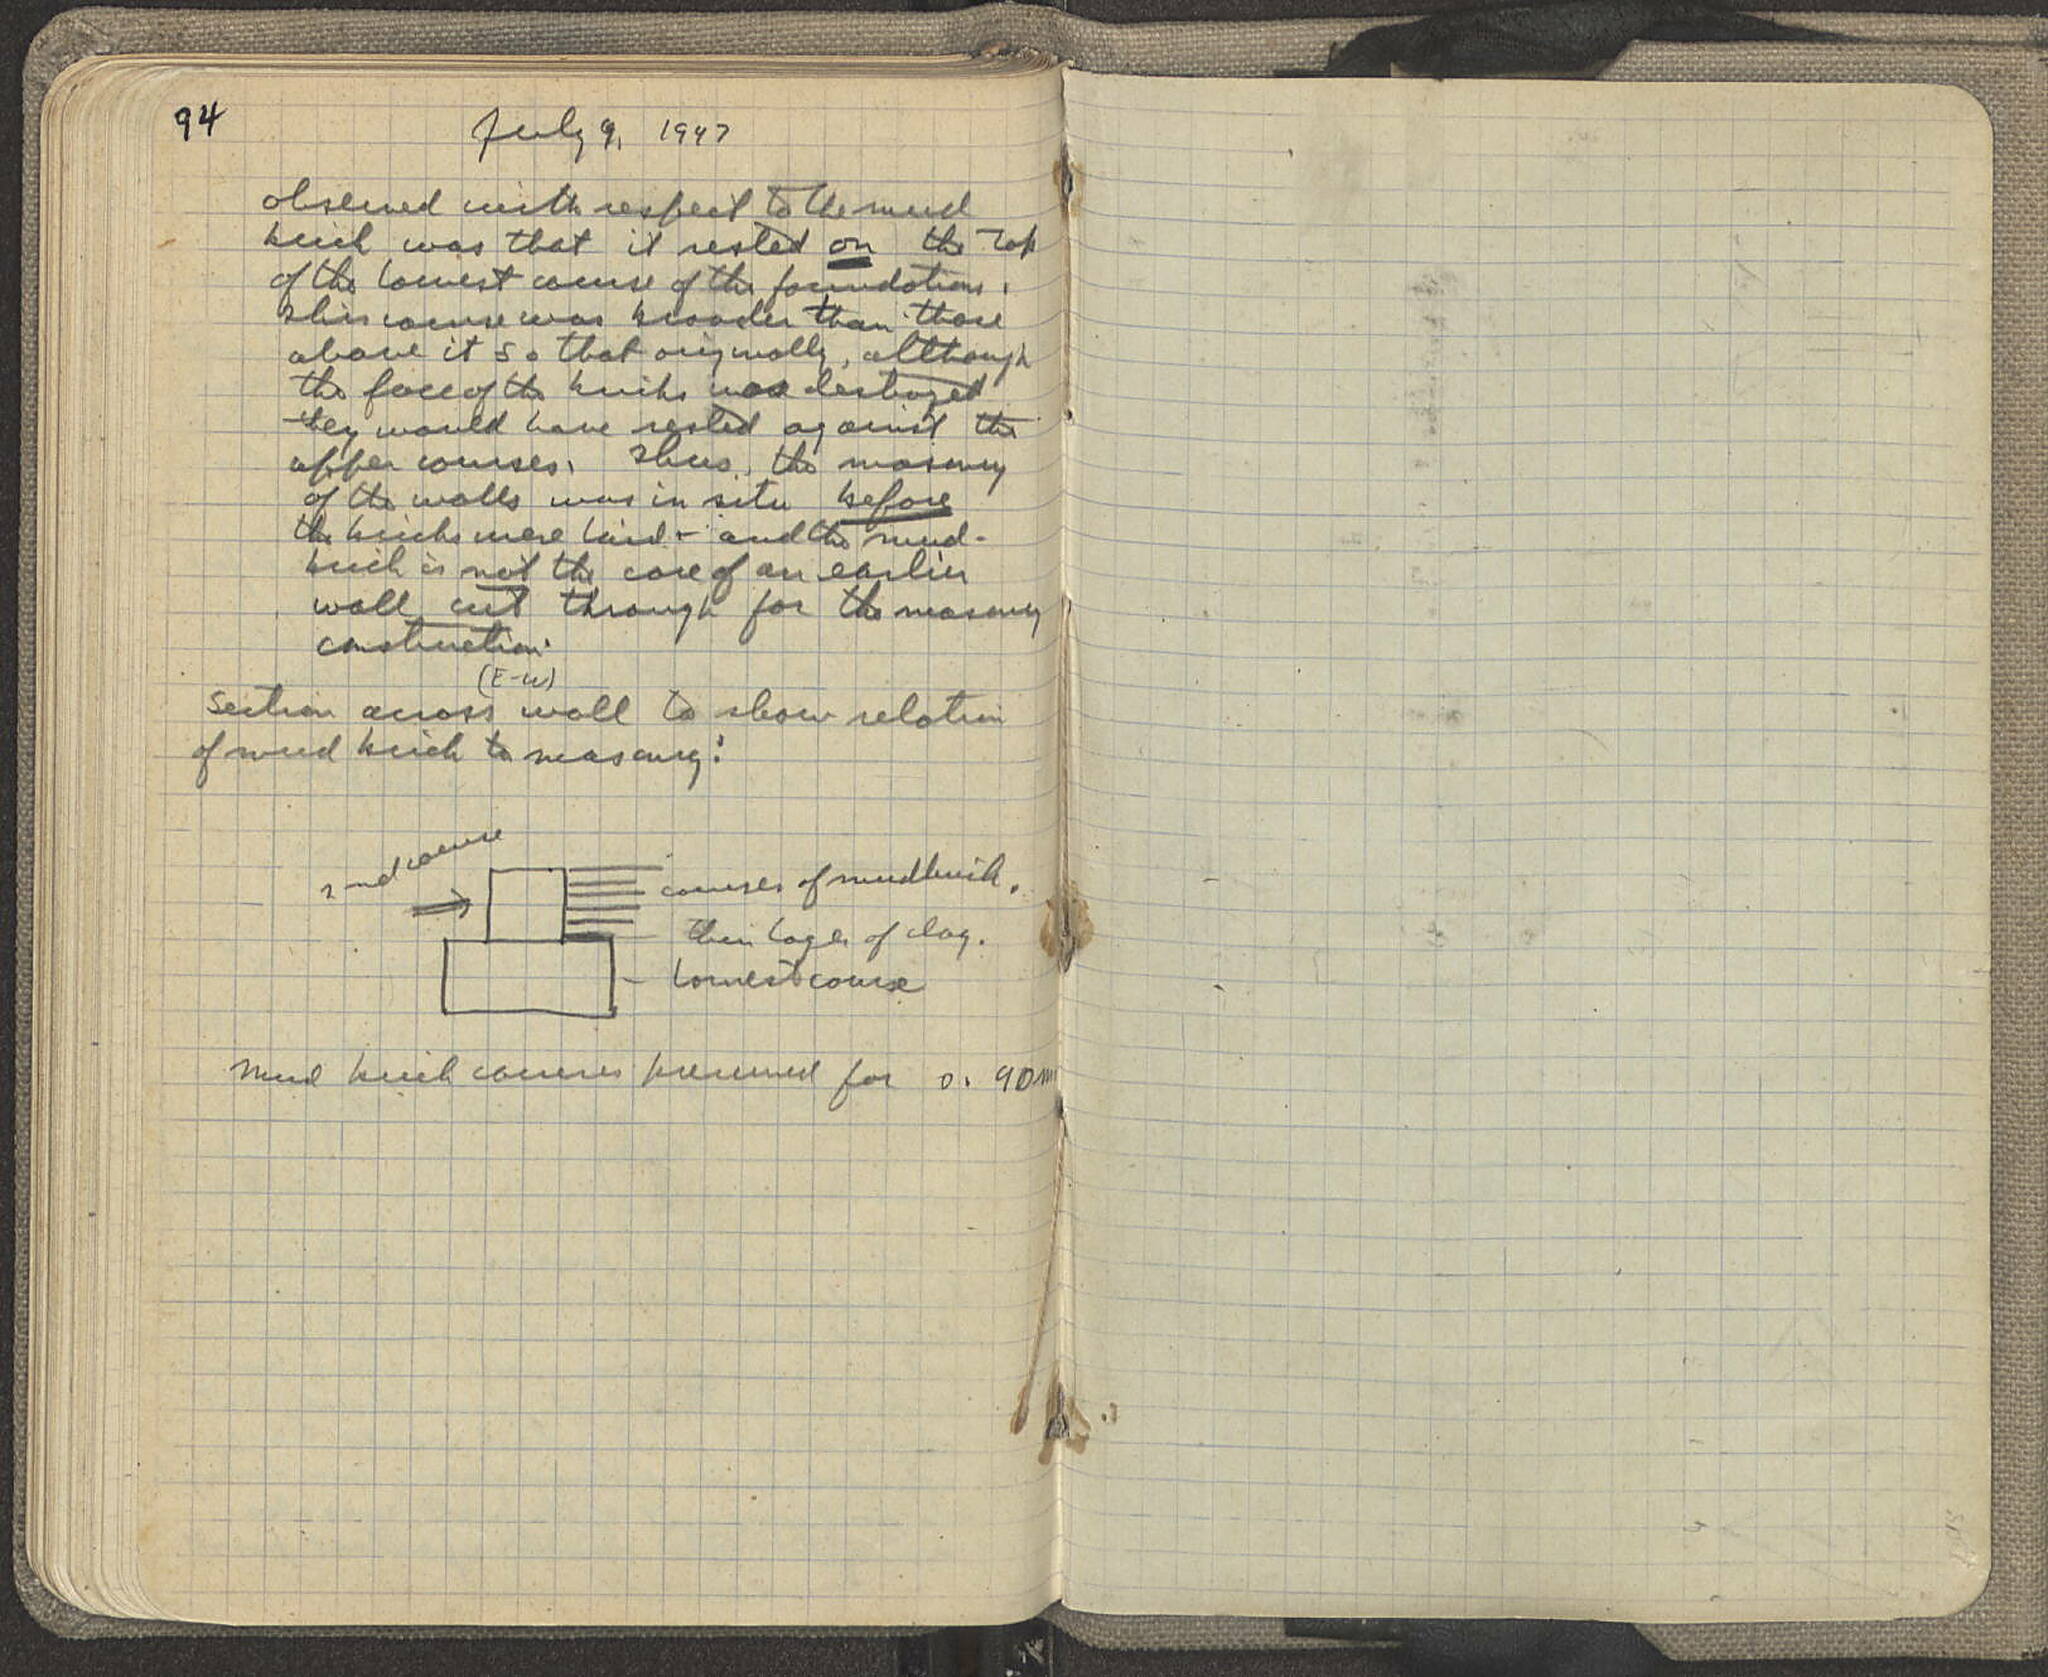 94
July 9, 1947
observed with respect to the mud
brick was that it rested on the top
of the lowest course of the foundations.
This course was broader than those
above it so that originally, although
the face of the bricks was destroyed
they would have rested against the
upper courses. Thus, the masonry
of the walls was in situ before
the bricks were laid - and the mud-
brick is not the core of an earlier
wall cut through for the masonry
construction.
(E-W)
Section across wall to show relation
of mud brick to masonry:
2nd course
courses of mudbrick.
thin layer of clay.
lowest course
Mud brick courses preserved for 0.90m